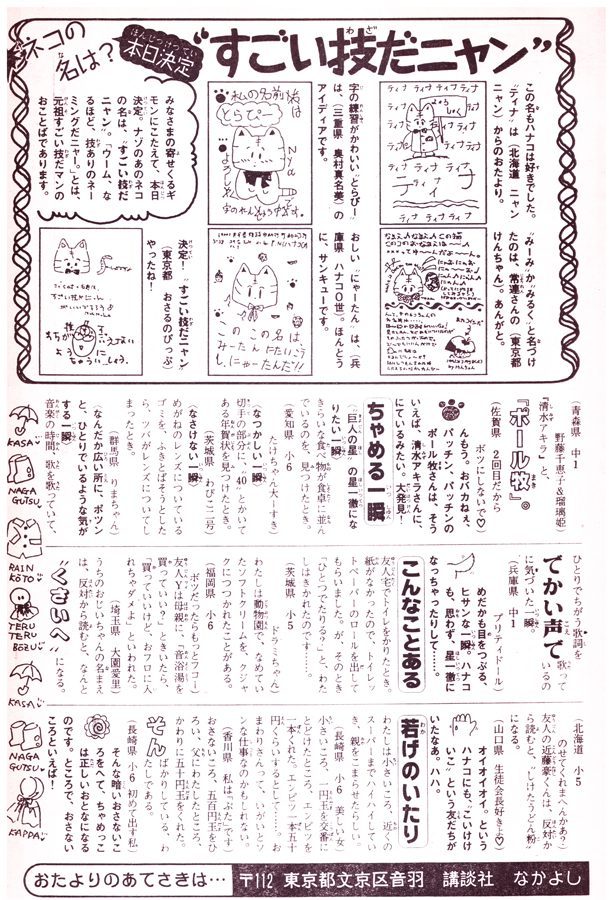 ネコの
名は?
本日決定
“すごい技だニャン”
みなさまの寄せくるギ
モンにこたえて、本日
決定。ナゾのあのネコ
の名は、“すごい技だ
ニャン”。「ウーム、な
るほど、技ありのネー
ミングだニャー」とは、
元祖すごい技だマンの
おことばであります。
この名もハナコは好きでした。
“ティナ”は〈北海道 ニャン
ニャン〉からのおたより。
字の練習がかわいい“とらぴー”
は、〈三重県 奥村真名美〉の
アイディアです。
私の名前は
とらぴー
“みーみ”か“みるく”と名づけ
たのは、常連さんの〈東京都
けんちゃん〉。あんがと。
おしい“にゃーたん”は、〈兵
庫県 ハナコ0世〉。ほんとう
に、サンキューです。
この この名は
みーたん にたいこうし、にゃーたんだ!!
決定!“すごい技だニャン”
〈東京都 おさるのぴっぷ〉
やったね!
〈青森県 中1
野藤千恵子&瑠璃姫〉
『清水アキラ』と、
『ポール牧』。
〈佐賀県 2回目だから
ボツにしないで♡〉
んもう。おバカねぇ、
パッチン、パッチンの
ポール牧さんは、そう
いえば、清水アキラさんに、
にているみたい。大発見!
ちゃめる一瞬
〈『巨人の星』の星一徹にな
りたい一瞬〉
きらいな食べ物が食卓に並ん
でいるのを、見つけたとき。
〈愛知県 小6
たけちゃん大ーすき〉
〈なつかしい一瞬〉
切手の部分が、「40」とかいて
ある年賀状を見つけたとき。
〈茨城県 わぴこ二号〉
〈なさけない一瞬〉
めがねのレンズについている
ゴミを、ふきとばそうとした
ら、ツバがレンズについてし
まったとき。
〈群馬県 りまちゃん〉
〈なんだか広い所に、ポツン
と、ひとりでいるような気が
する一瞬〉
音楽の時間、歌を歌っていて、
ひとりでちがう歌詞を
でかい声で歌って
いるの
に気づいた一瞬。
〈兵庫県 中1
プリティドール〉
めだかも目をつぶる、
ヒサンな一瞬。ハナコ
も、思わず、星一徹に
なっちゃったりして……。
こんなことある
友人宅でトイレをかりたとき。
紙がなかったので、トイレッ
トペーパーのロールを出して
もらいました。が、そのとき
「ひとつでたりる?」と、わた
しはきかれたのです……。
〈茨城県 小5
ドラミちゃん〉
わたしは動物園で、なめてい
たソフトクリームを、クジャ
クにつつかれたことがある。
〈福岡県 小6
ボツだったらもっとワコー〉
友人Yは母親に、「音浴湯を
買っていい?」ときいたら、
「買っていいけど、おフロに入
れちゃダメよ」といわれた。
〈埼玉県 大園愛里〉
うちのおじいちゃんの名まえ
は、反対から読むと、なんと
“くさいへ”になる。
〈北海道 小5
のせてくれまへんかあり〉
友人の近藤豪くんは、反対か
ら読むと、“じけんだうどん粉”
になる。
〈山口県 生徒会長好きよ♡〉
オイオイオイ。という
ハナコにも、“こいけけ
いこ”という友だちが
いたなあ。ハハ。
若げのいたり
わたしは小さいころ、近くの
スーパーまでハイハイしてい
き、親をこまらせたらしい。
〈長崎県 小6 美しい女〉
小さいころ、一円玉を交番に
とどけたところ、エンピツを
一本くれた。エンピツ一本五十
円くらいするとして……。お
まわりさんって、いがいとソ
ンな仕事なのかもしれない。
〈香川県 私は“ぶた”です〉
おさないころ、五百円玉をひ
ろい、父にわたしたところ、
かわりに五十円玉をくれた。
そんばかりしている、わ
たしである。
〈長崎県 小6 初めて出す私〉
そんな暗いおさないこ
ろをへて、ちゃめっこ
は正しいおとなになる
のです。ところで、おさない
ころといえば!
KASA
NAGA
GUTSU
RAIN
KOTO
TERU
TERU
BOZU
KASA
NAGA
GUTSU
KAPPA
おたよりのあてさきは…
〒112 東京都文京区音羽 講談社 なかよし